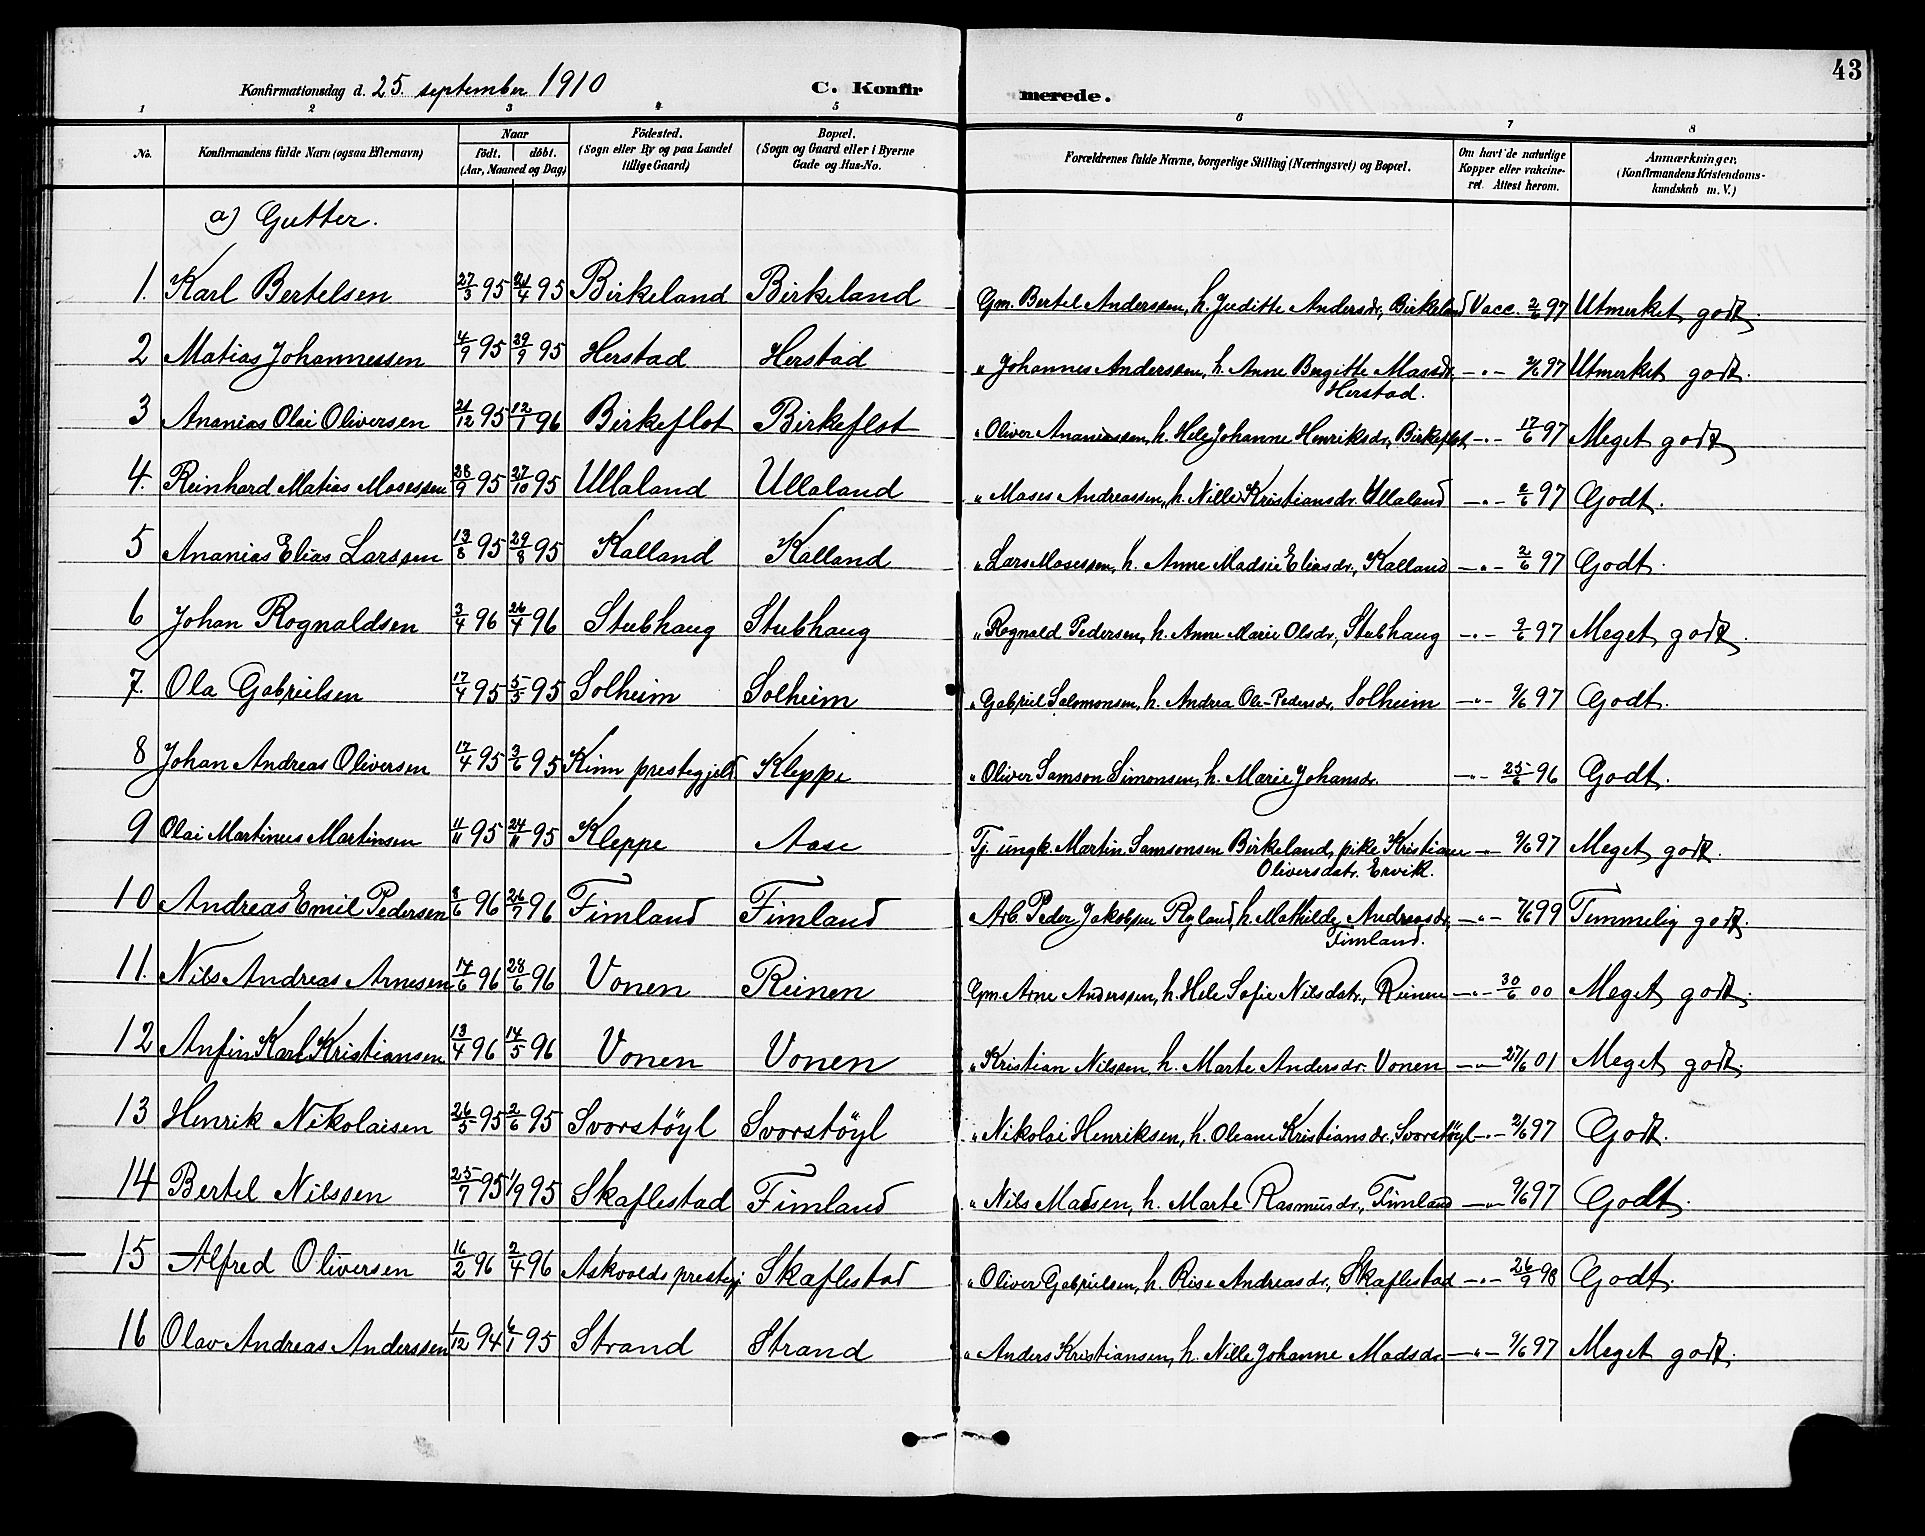 43
Konfirmationsdag d. 25. september 1910 C. Konfirmerede.
1 2 3 4 5 6 7 8
No. Konfirmandens fulde Navn (ogsaa Efternavn) Naar födt. döbt. (Aar, Maaned og Dag) Födested. (Sogn eller By og paa Landet tillige Gaard) Bopæl. (Sogn og Gaard eller i Byerne Gade og Hus-No. Forældrenes fulde Navne, borgerlige Stilling (Næringsvei) og Bopæl. Om havt de naturlige Kopper eller vakcineret. Attest herom. Anmærkninger. (Konfirmandens Kristendomskundskab m. V.)
a) Gutter.
1. Karl Bertelsen 27/3 95 21/4 95 Birkeland Birkeland Gm. Bertel Anderssen, h. Juditte Andersdr., Birkeland Vacc. 2/6 97 Utmerket godt.
2 Matias Johannessen 4/9 95 29/9 95 Herstad Herstad " Johannes Anderssen, h. Anne Bergitte Massdr. -"- 2/6 97 Utmerket godt.
Herstad.
3 Ananias Olai Oliversen 21/12 95 12/1 96 Birkeflot Birkeflot " Oliver Ananiassen, h. Hele Johanne Henriksdr., Birkeflot -"- 17/6 97 Meget godt
4. Reinhard Matias Mosessen 28/9 95 27/10 95 Ullaland Ullaland " Moses Andreassen, h. Nille Kristiansdr. Ullaland -"- 2/6 97 Godt.
5 Ananias Elias Larssen 13/8 95 29/8 95 Kalland Kalland " Lars Mosessen, h. Anne Madsie Eliasdr., Kalland -"- 2/6 97 Godt.
6 Johan Rognaldsen 3/4 96 26/4 96 Stubhaug Stubhaug " Rognald Pedersen, h. Anne Marie Olsdr., Stubhaug -"- 9/6 97 Meget godt.
7. Ola Gabrielsen 17/4 95 5/5 95 Solheim Solheim " Gabriel Salomonsen, h. Andrea Ole-Pedersdr., Solheim -"- 9/6 97 Godt.
8 Johan Andreas Oliversen 17/4 95 3/6 95 Kinn prestegjeld Kleppe " Oliver Samson Simonsen, h. Marie Johansdr. -"- 25/6 96 Godt.
9 Olai Martinus Martinsen 11/11 95 24/11 95 Kleppe Aase Tj. ungk. Martin Samsonsen Birkeland, pike Kristiane -"- 9/6 97 Meget godt.
Oliversdatr. Ervik.
10 Andreas Emil Pedersen 8/6 96 26/7 96 Timland Timland Arb. Peder Jakobsen Ryland, h. Mathilde Andreasdr., -"- 7/6 99 Temmelig godt.
Timland.
11. Nils Andreas Arnesen 14/6 96 28/6 96 Vonen Reinen Gm. Arne Anderssen, h. Hele Sofie Nilsdatr., Reinen -"- 30/6 00 Meget godt.
12 Anfin Karl Kristiansen 13/4 96 14/5 96 Vonen Vonen " Kristian Nilssen, h. Marte Andersdr. Vonen -"- 27/6 01 Meget godt.
13 Henrik Nikolaisen 26/5 95 2/6 95 Svorstöyl Svorstöyl " Nikolai Henriksen, h. Oleane Kristiansdr., Svorstöyl -"- 2/6 97 Godt.
14 Bertel Nilssen 25/7 95 1/9 95 Skaflestad Timland " Nils Madsen, h. Marte Rasmusdr., Timland -"- 9/6 97 Godt.
15 Alfred Oliversen 16/2 96 2/4 96 Askvolds prestegj. Skaflestad " Oliver Gabrielsen, h. Rise Andreasdr., Skaflestad -"- 26/9 98 Godt.
16 Olav Andreas Anderssen 1/12 94 6/1 95 Strand Strand " Anders Kristiansen, h. Nille Johanne Madsdr. -"- 9/6 97 Meget godt.